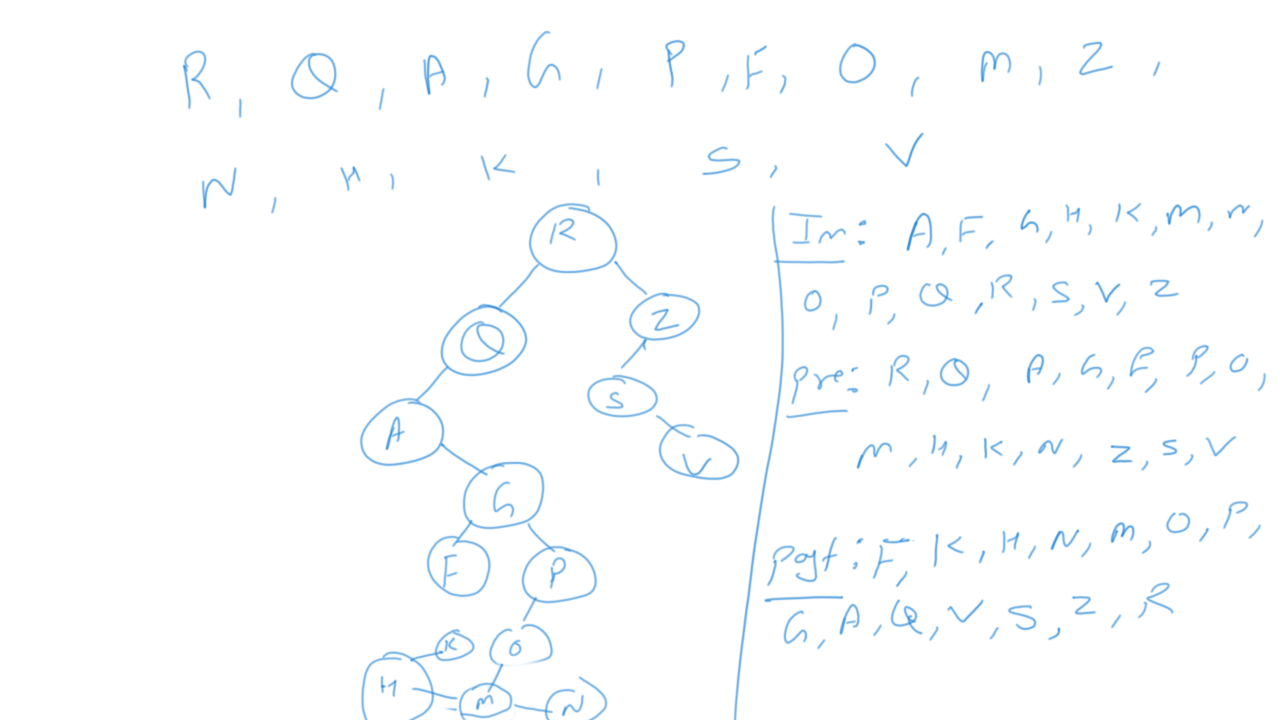 R, Q, A, G, P, F, O, M, Z,
N, H, K, S, V
R
Q
Z
A
S
V
G
F
P
K
O
H
M
N
In: A, F, G, H, K, M, N,
O, P, Q, R, S, V, Z
Pre: R, Q, A, G, F, P, O,
M, H, K, N, Z, S, V
Post: F, K, H, N, M, O, P,
G, A, Q, V, S, Z, R